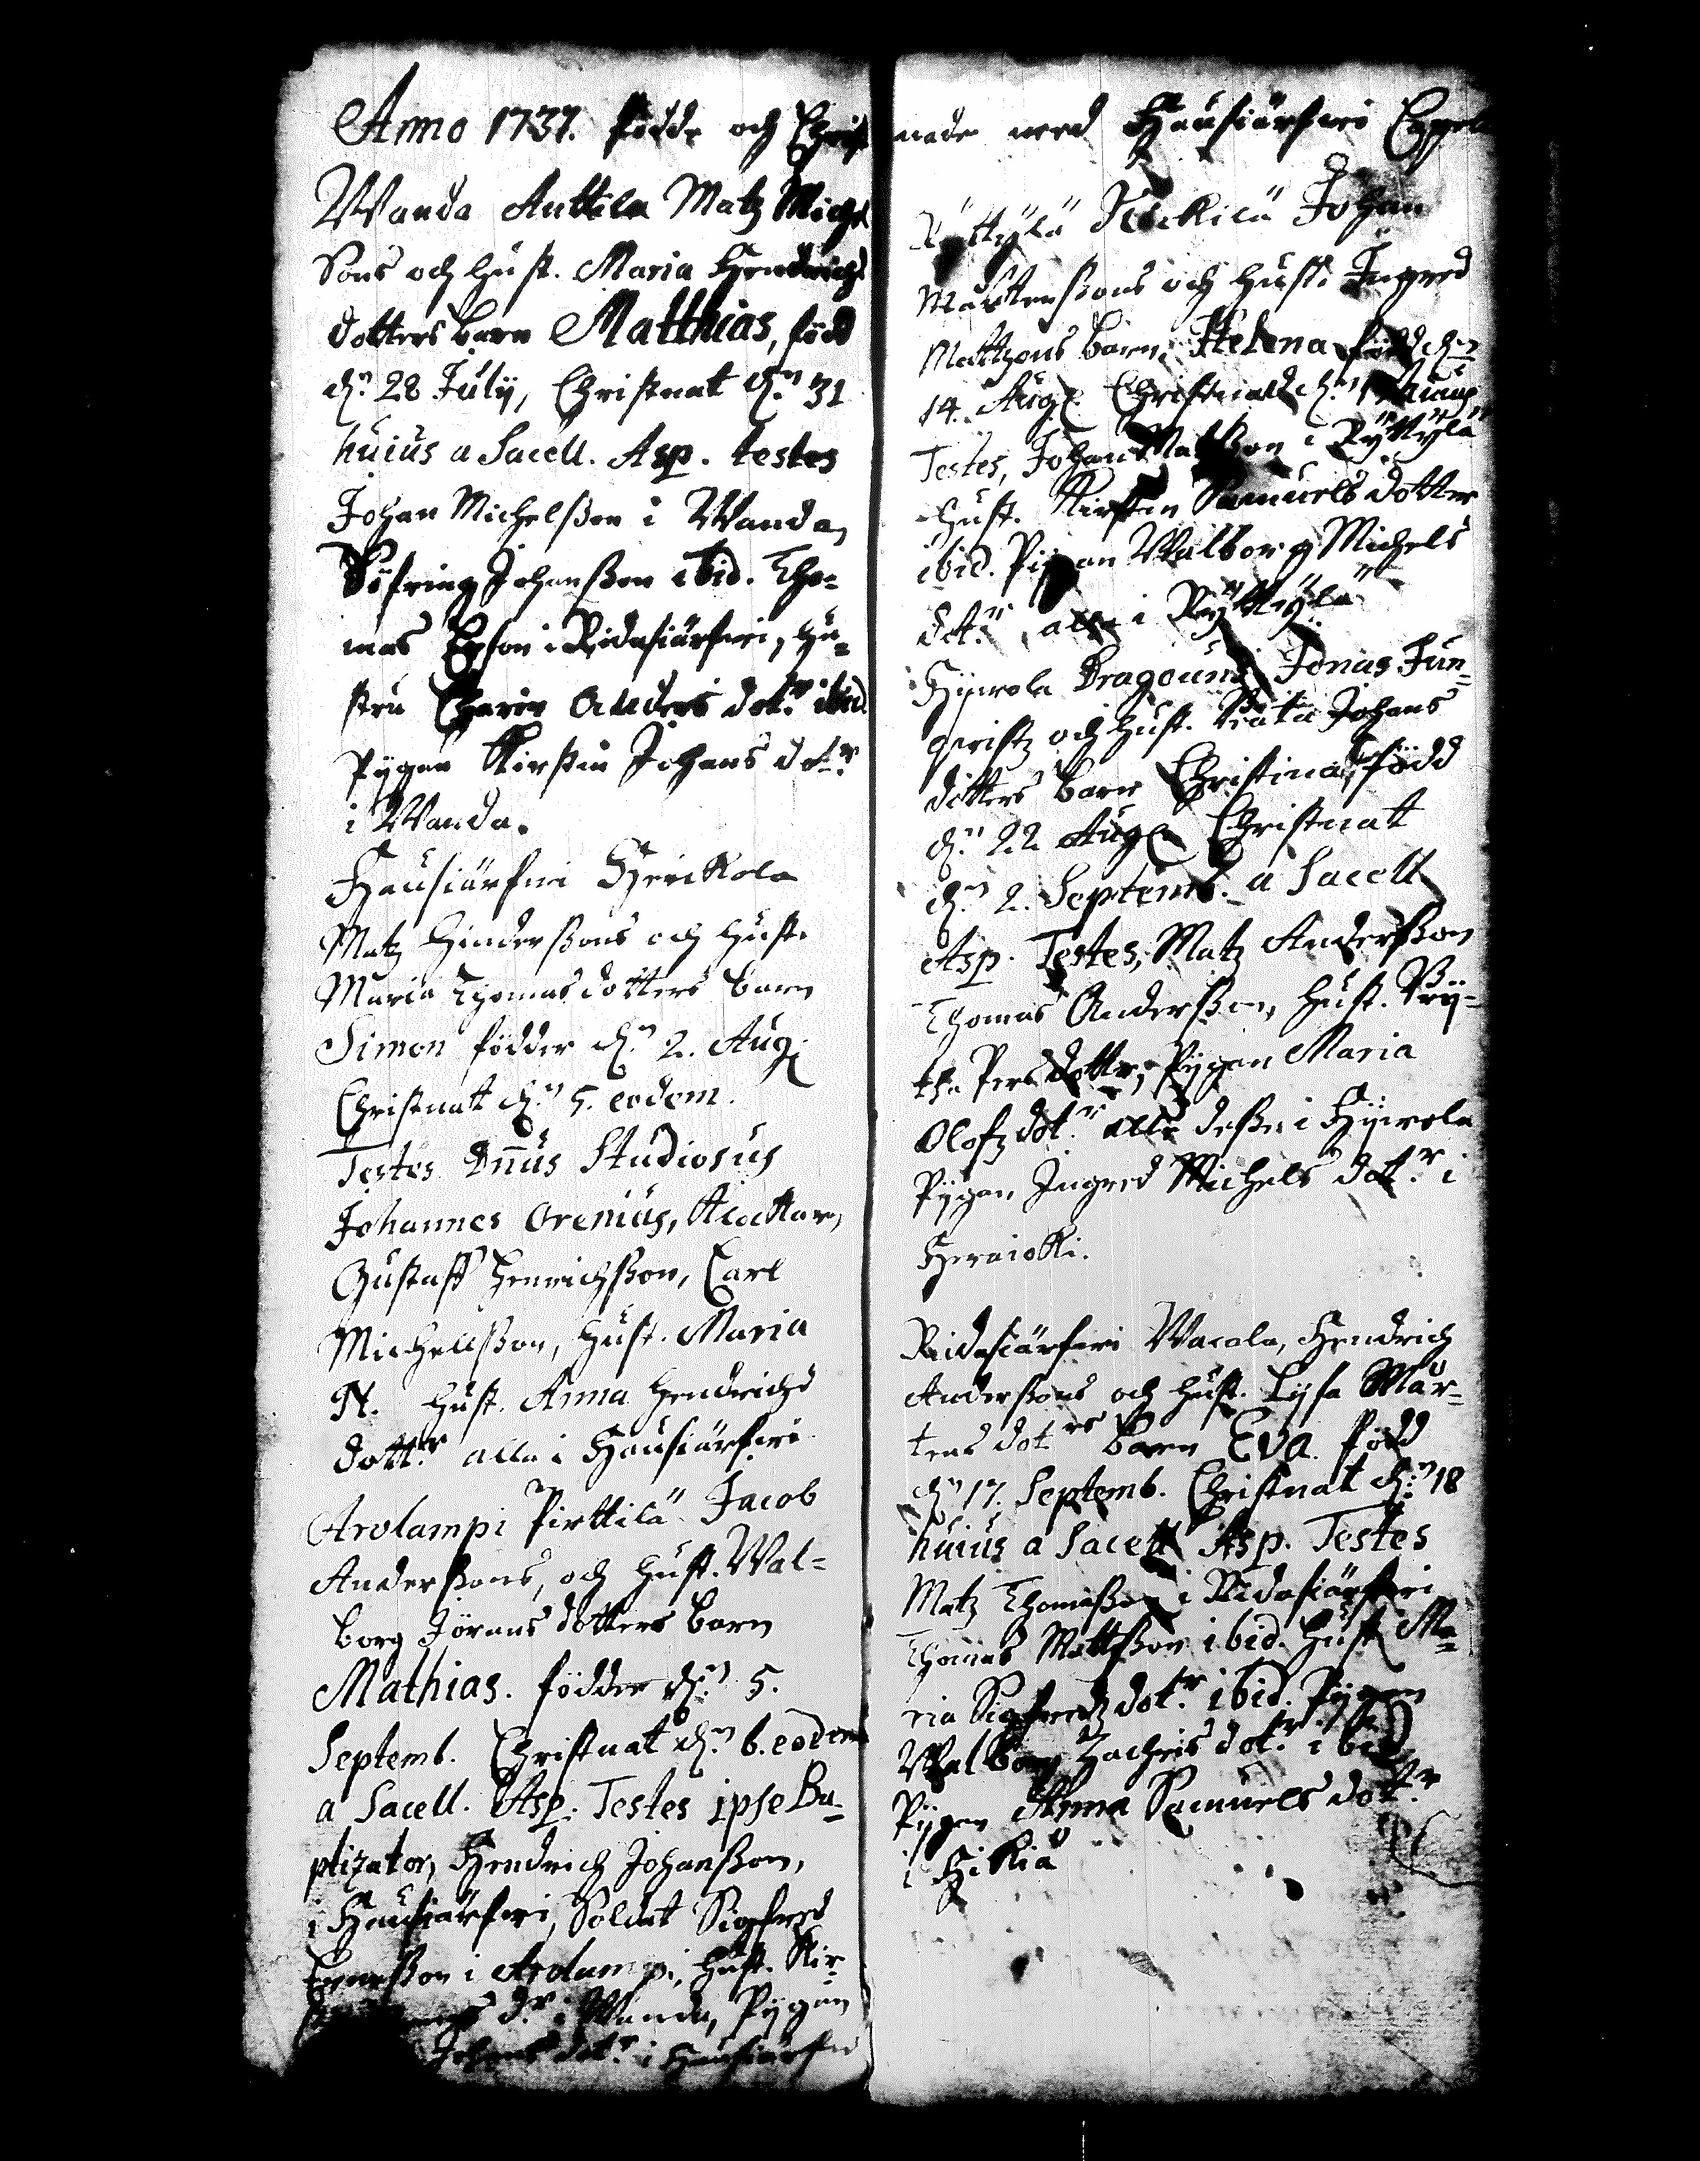 Anno 1737. födde och Christnade wed Hausiärfwi Cappell
Wanda Anttila Matz Michel
Sons och hust. Maria Hendrichs
dotters barn Matthias, född
dn. 28 July, Christnat dn. 31
huius a Sacell. Asp. testes
Johan Michelßon i Wanda,
Sifring Johanßon ibid. Tho=
mas Erson i Ridasiärfwi, hu=
stru Charin Anders dotr. ibid
Pygan Kirstin Johans dotr.
i Wanda.
Hausiärfwi Heickola
Matz Hinderßons och hust.
Maria Thomas dotters barn
Simon födder dn. 2. Aug.
Christnat dn. 5. eodem.
Testes Dnus Studiosus
Johannes Orenius, Klockar,
Gustaff Henrichßon, Carl
Michelßon, hust. Maria
N. hust. Anna Hendrichs
dottr. alla i Hausiärfwi
Arolampi Pirttilä Jacob
Anderßons, och hust. Wal=
borg Jörans dotters barn
Mathias. födder dn. 5.
Septemb. Christnat dn. 6. eodem
a Sacell. Asp. Testes ipse Ba=
ptizator, Hendrich Johanßon,
i Hausiärfwi, Soldat Sigfred
i Arolampi, hust. Kir=
dr. i Wanda, Pygan
Johans dotr. i Hausiärfwi
Ryttylä Johan
Mårtenßons och hust. Ingred
Mattzons barn, Helena född dn.
14. Aug. Christnat dn. huius
Testes, Johan Matßon i Ryttylä
hust. Kirstin Samuels dotter
ibid. Pigan Walborg Michels
dotr. alla i Ryttylä
Hywola Dragouns Jonas Jun=
qwistz och hust. Beata Johans
dotters barn Christina, född
dn. 22 Aug. Christnat
dn. 2. Septemb. a Sacell
Asp. Testes, Matz Anderßon
Thomas Anderßon, hust. Bry=
tha Pers dotter, Pygan Maria
Olofz dotr. alla deße i Hywola
Pygan Ingred Michels dotr. i
Heraioki.
Ridasiärfwi Wacala, Hendrich
Anderßons och hust. Lysa Mår=
tens dotrs barn Eva född
dn. 17. Septemb. Christnat dn. 18
huius a Sacell Asp. Testes
Matz Thomaßon i Ridasiärfwi
Thomas Mattßon ibid. hust. Ma=
ria Sigfredz dotr. ibid. Pygan
Walborg Zachris dotr. ibid
Pygan Anna Samuels dottr
i Hikiä